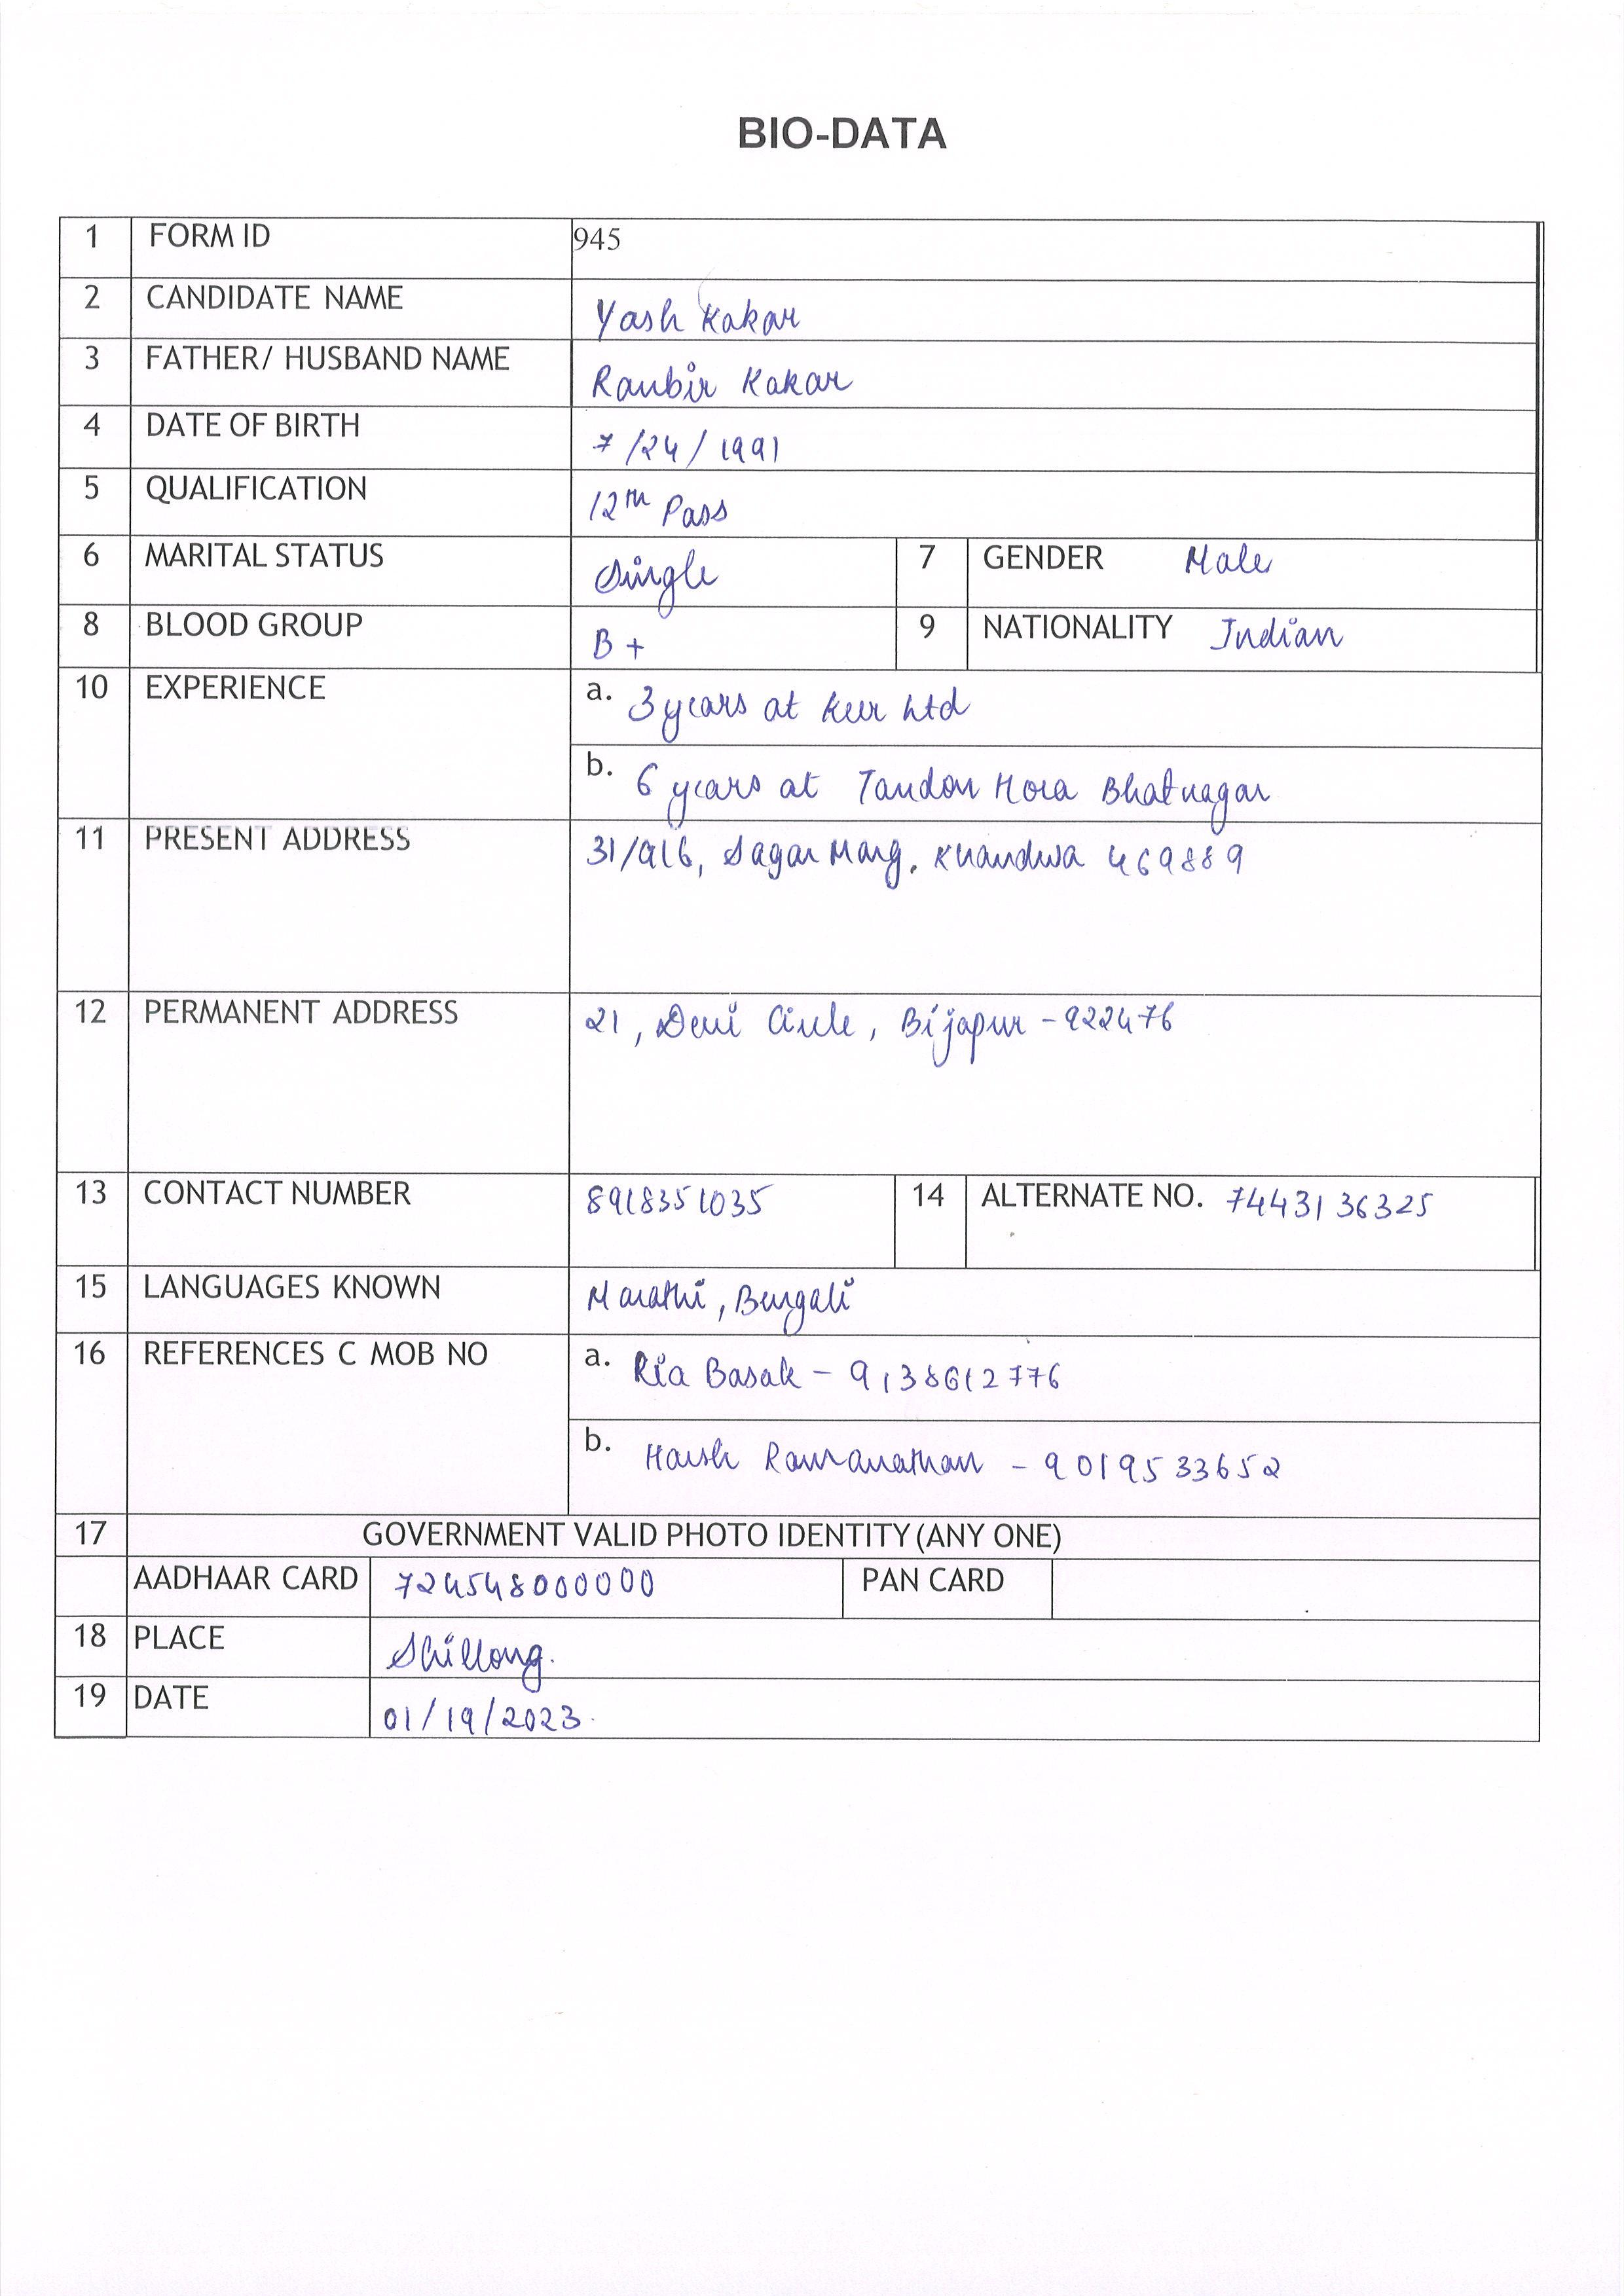 BIO-DATA
1 FORM ID 945
2 CANDIDATE NAME Yash Kakar
3 FATHER/ HUSBAND NAME Ranbir Kakar
4 DATE OF BIRTH 7/24/1991
5 QUALIFICATION 12th Pass
6 MARITAL STATUS Single 7 GENDER Male
8 BLOOD GROUP B+ 9 NATIONALITY Indian
10 EXPERIENCE a. 3 years at Kur Ltd
b. 6 years at Tandon Hora Bhatnagar
11 PRESENT ADDRESS 31/916, Sagar Marg, Khandwa 469889
12 PERMANENT ADDRESS 21, Devi Circle, Bijapur - 922476
13 CONTACT NUMBER 8918351035 14 ALTERNATE NO. 7443136325
15 LANGUAGES KNOWN Marathi, Bengali
16 REFERENCES C MOB NO a. Ria Basak - 9138612776
b. Harsh Ramanathan - 9019533652
17 GOVERNMENT VALID PHOTO IDENTITY (ANY ONE)
AADHAAR CARD 724548000000 PAN CARD
18 PLACE Shillong.
19 DATE 01/19/2023